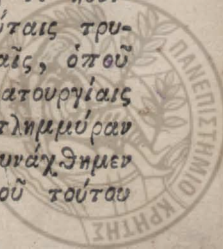 ύταις τρυ-
αῖς, ὁποῦ
ατουργίαις
πλημμύραν
υνάχθημεν
οῦ τούτου
ΠΑΝΕΠΙΣΤΗΜΙΟ ΚΡΗΤΗΣ